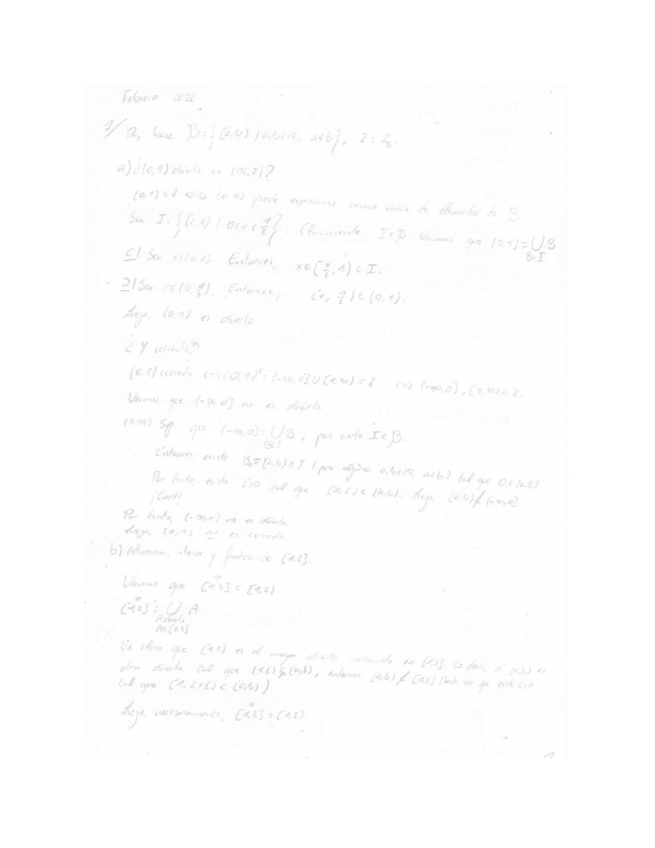 Febrero 2022
1/ ℝ, base B = {[a,b) | a,b∈ℝ, a<b}, τ = τ_B.
a) ¿(0,1) abierto en (ℝ,τ)?
(0,1)∈τ ⟺ (0,1) puede expresarse como unión de elementos de B
Sea I = {[r,1) | 0<r<1/2}. Claramente I⊂B. Veamos que (0,1) = ⋃_{B∈I} B
⊆| Sea x∈(0,1). Entonces,
⊇| Sea r∈ Entonces, ⊂ (0,1).
Luego, (0,1) es abierto.
¿Y cerrado?
(0,1) cerrado ⟺ (0,1)ᶜ = (-∞,0]∪[1,∞) ∈ τ
Veamos que (-∞,0] no es abierto.
Sup. que (-∞,0] = ⋃_{B∈I} B, para cierto I⊂B.
Entonces existe [a,b)∈I (para algún a,b∈ℝ, a<b) tal que 0∈[a,b).
Por tanto, existe ε>0 tal que [0,ε) ⊂ [a,b). Luego, [a,b) ⊄ (-∞,0]
¡Contr!
Por tanto, (-∞,0] no es abierto.
Luego, (0,1) no es cerrado.
b) Adherencia, interior y frontera de [1,2].
Veamos que [1,2]° = [1,2).
[1,2]° = ⋃ A.
A abierto
A⊂[1,2]
Es claro que [1,2) es el mayor abierto contenido en [1,2]. Es decir, si [a,b) es
otro abierto tal que [1,2) ⊊ [a,b), entonces [a,b) ⊄ [1,2]
tal que [1,2+ε) ⊂ [a,b))
Luego, necesariamente, [1,2]° = [1,2).
1